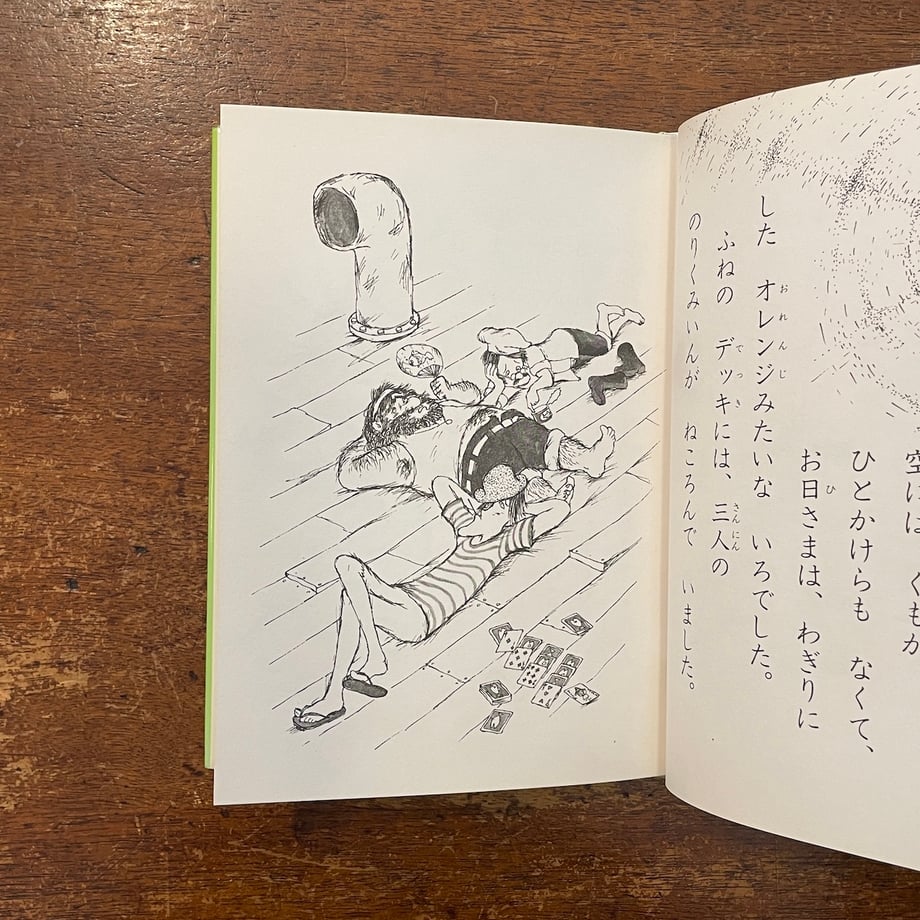 空には くもが
ひとかけらも なくて、
ひ
お日さまは、わぎりに
おれんじ
した オレンジみたいな いろでした。
でっき さんにん
ふねの デッキには、三人の
のりくみいんが ねころんで いました。